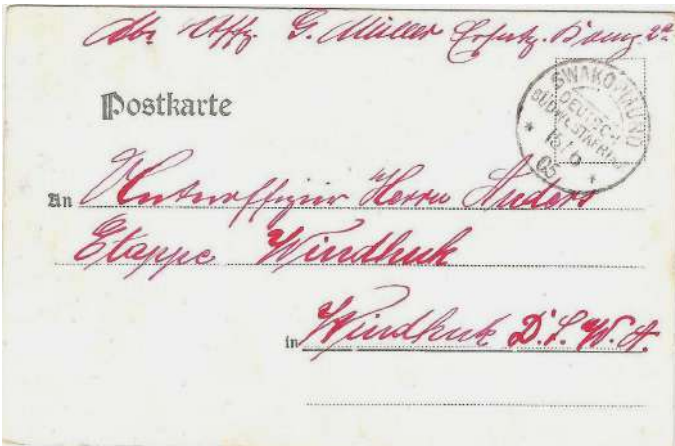 Abs Uffz. G. Müller Ersatz. Komp. 2a
Postkarte
SWAKOPMUND
DEUTSCH-
SÜDWESTAFRIKA
05
An Unteroffizier Herrn Anders
Etappe Windhuk
in Windhuk D.S.W.A.